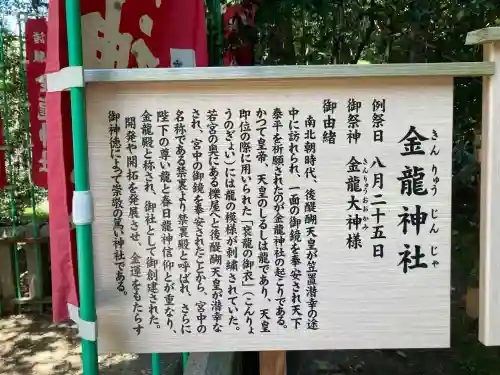 金龍神社
きんりゅうじんじゃ
例祭日　八月二十五日
御祭神　金龍大神様
きんりゅうおおかみ
御由緒
南北朝時代、後醍醐天皇が笠置潜幸の途
中に訪れられ、一面の御鏡を奉安され天下
泰平を祈願されたのが金龍神社の起こりである。
かつて皇帝、天皇のしるしは龍であり、天皇
即位の際に用いられた「袞龍の御衣」（こんりょ
うのぎょい）には龍の模様が刺繍されていた。
若宮の奥にある櫟尾へと後醍醐天皇が潜幸な
され、宮中の御鏡を奉安されたことから、宮中の
名称である禁裏より禁裏殿と呼ばれ、さらに
陛下の尊い龍と春日龍神信仰とが重なり、
金龍殿と称され、御社として御創建された。
開発や開拓を発展させ、金運をもたらす
御神徳によって崇敬の篤い神社である。